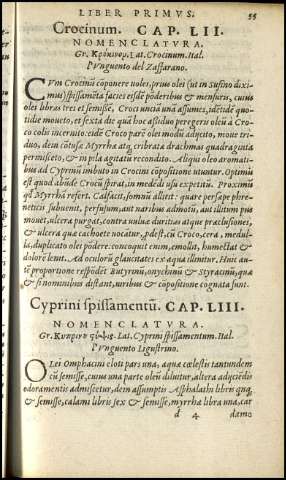 LIBER PRIMVS. 55
Crocinum. CAP. LII.
NOMENCLATVRA.
Gr. Κρόκινον. Lat. Crocinum. Ital.
Pvnguento del Zaffarano.
CVm Crocinũ cõponere voles, prius olei (ut in Susino dixi-
mus) spissamẽta facies eisdẽ põderibus & mensuris, cuius
olei libras tres et semisse, Croci unciã unã assumes, idẽtidẽ quo-
tidie moueto, et sexta die quã hoc assiduo peregeris oleũ à Cro-
co colis inceruito: eidẽ Croco parẽ olei modũ adijcito, moue tri-
duo, dein cõtusæ Myrrha atq; cribratæ drachmas quadraginta
permisceto, & in pila agitatũ recondito. Aliqui oleo aromati-
bus ad Cyprinũ imbuto in Crocini cõpositione utuntur. Optimũ
est quod abũde Crocũ spirat, in medẽdi usu expetitũ. Proximũ
qđ Myrrhã refert. Calfacit, somnũ allicit: quare persæpe phre-
neticis subuenit, perfusum, aut naribus admotũ, aut illitum pus
mouet, ulcera purgat, contra vuluæ duritias atque præclusiones,
& ulcera quæ cachoete nocãtur, pdest, cũ Croco, cera, medul-
la, duplicato olei põdere: concoquit enim, emollit, humectat &
dolorẽ lenit. Ad oculorũ glaucitates ex aqua illinitur. Huic au-
tẽ proportione respõdẽt Butyrinũ, onychinũ & Styracinũ, quæ
& si nominibus distant, uiribus & cõpositione cognata sunt.
Cyprini spissamentũ. CAP. LIII.
NOMENCLATVRA.
Gr. Κυπρίνου Lat. Cyprini spissamentum. Ital.
Pvnguento Ligustrino.
OLei Omphacini eloti pars una, aquæ cælestis tantundem
cũ semisse, cuius una parte oleũ diluitur, altera adijciẽdis
odoramentis admiscetur, dein assumptis Aspalathi libris qnq;
& semisse, calami libris sex & semisse, myrrha libra una, car
d 4 damo